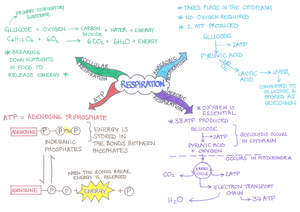 PRIMARY RESPIRATORY
SUBSTRATE
GLUCOSE + OXYGEN → CARBON DIOXIDE + WATER + ENERGY
C6H12O6 + 6O2 → 6CO2 + 6H2O + ENERGY
* BREAKING
DOWN NUTRIENTS
IN FOOD TO
RELEASE ENERGY *
CELLULAR
RESPIRATION
* TAKES PLACE IN THE CYTOPLASM
* NO OXYGEN REQUIRED
* 2 ATP PRODUCED
GLUCOSE
→ 2ATP
PYRUVIC ACID
LACTIC ACID
→ LIVER
CONVERTED TO
GLUCOSE &
STORED AS
GLYCOGEN
ANAEROBIC
RESPIRATION
RESPIRATION
ATP
AEROBIC
RESPIRATION
* OXYGEN IS
ESSENTIAL
* 38 ATP PRODUCED
GLUCOSE
→ 2ATP
PYRUVIC ACID
+ OXYGEN
GLYCOLYSIS OCCURS
IN CYTOPLASM
OCCURS IN MITOCHONDRIA
CO2
KREBS
CYCLE
2ATP
ELECTRON TRANSPORT
CHAIN
H2O
34 ATP
ATP = ADENOSINE TRIPHOSPHATE
ADENOSINE P P P
INORGANIC
PHOSPHATES
ENERGY IS
STORED IN
THE BONDS BETWEEN
PHOSPHATES
WHEN THE BONDS BREAK
ENERGY IS RELEASED
ADENOSINE P P ENERGY + P